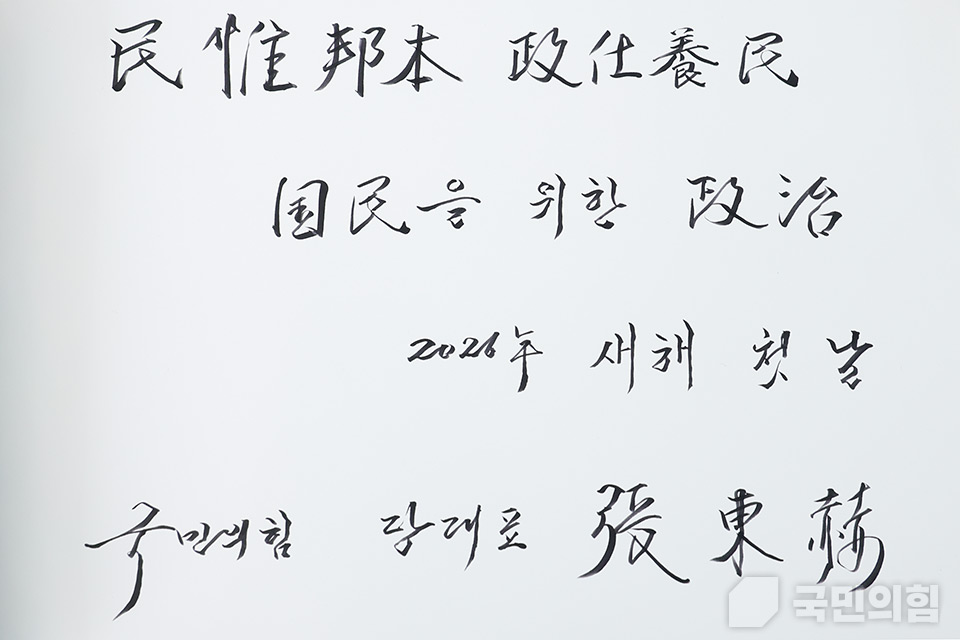 民惟邦本 政仕養民
国民을 위한 政治
2026年 새해 첫날
국민의힘 당대표 張東赫
국민의힘